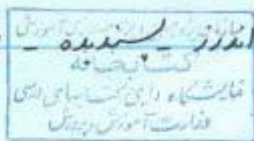 اندرز پسندیده
کتابخانه
نمایشگاه دایمی کتابهای درسی
وزارت آموزش و پرورش